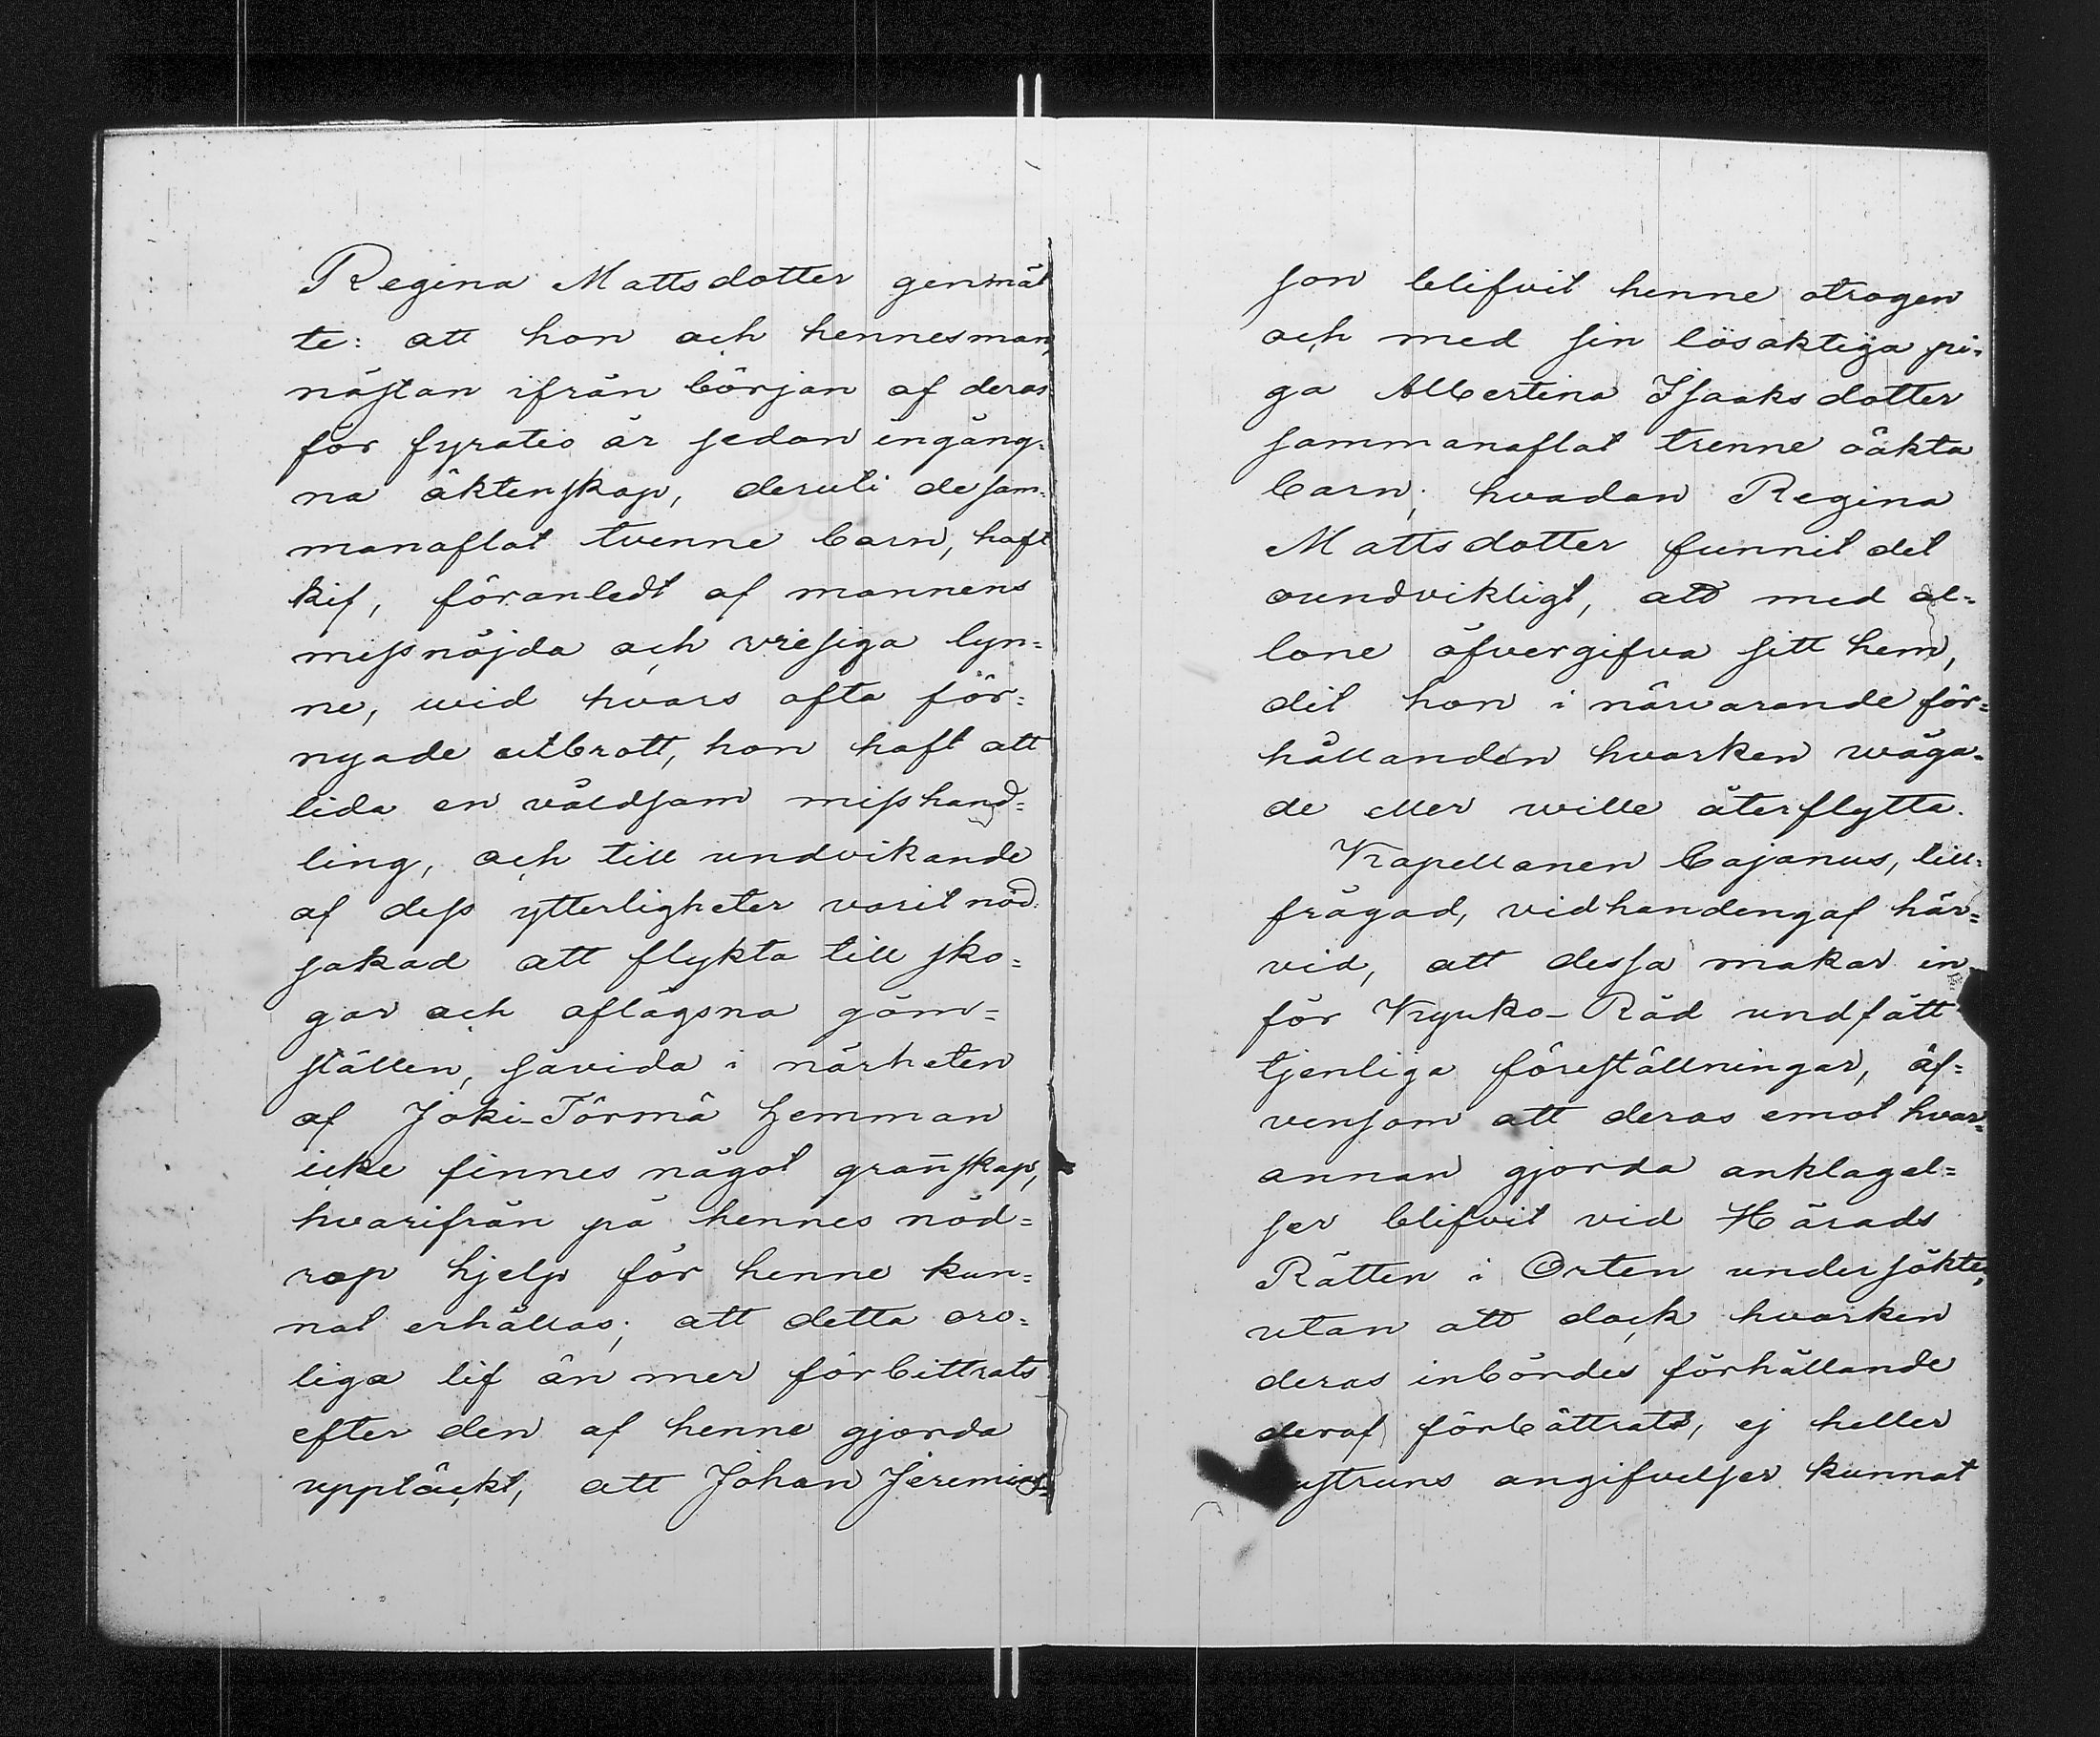 Regina Mattsdotter genmäl
te: att hon och hennes man,
nästan ifrån början af deras
för fyratio år sedan ingång-
na äktenskap, deruti de sam-
manaflat tvenne barn, haft
kif, föranledt af mannens
missnöjda och vresiga lyn=
ne, wid hvars ofta för=
nyade utbrott, hon haft att
lida en våldsam misshand=
ling, och till undvikande
af dess ytterligheter varit nöd-
sakad att flykta till sko=
gar och aflägsna göm=
ställen, såvida i närheten
af Joki-Törmä hemman
icke finnes något gran̄skap,
hvarifrån på hennes nöd=
rop hjelp för henne kun=
nat erhållas; att detta oro=
liga lif än mer förbittrats
efter den af henne gjorda
upptäckt, att Johan Jeremias=
son blifvit henne otrogen
och med sin lösaktiga pi-
ga Albertina Isaksdotter
sammanaflat trenne oäkta
barn; hvadan Regina
Mattsdotter funnit det
oundvikligt, att med al=
lone öfvergifva sitt hem,
dit hon i närvarande för=
hållanden hvarken wåga-
de eller wille återflytta.
Kapellanen Cajanus, till-
frågad, vidhandengaf här=
vid, att dessa makar in
för Kyrko-Råd undfått
tjenliga föreställningar, äf=
vensom att deras emot hvar-
annan gjorda anklagel=
ser blifvit vid Härads
Rätten i Orten undersökte,
utan att dock hvarken
deras inbördes förhållande
deraf förbättrats, ej heller
ustruns angifvelser kunnat